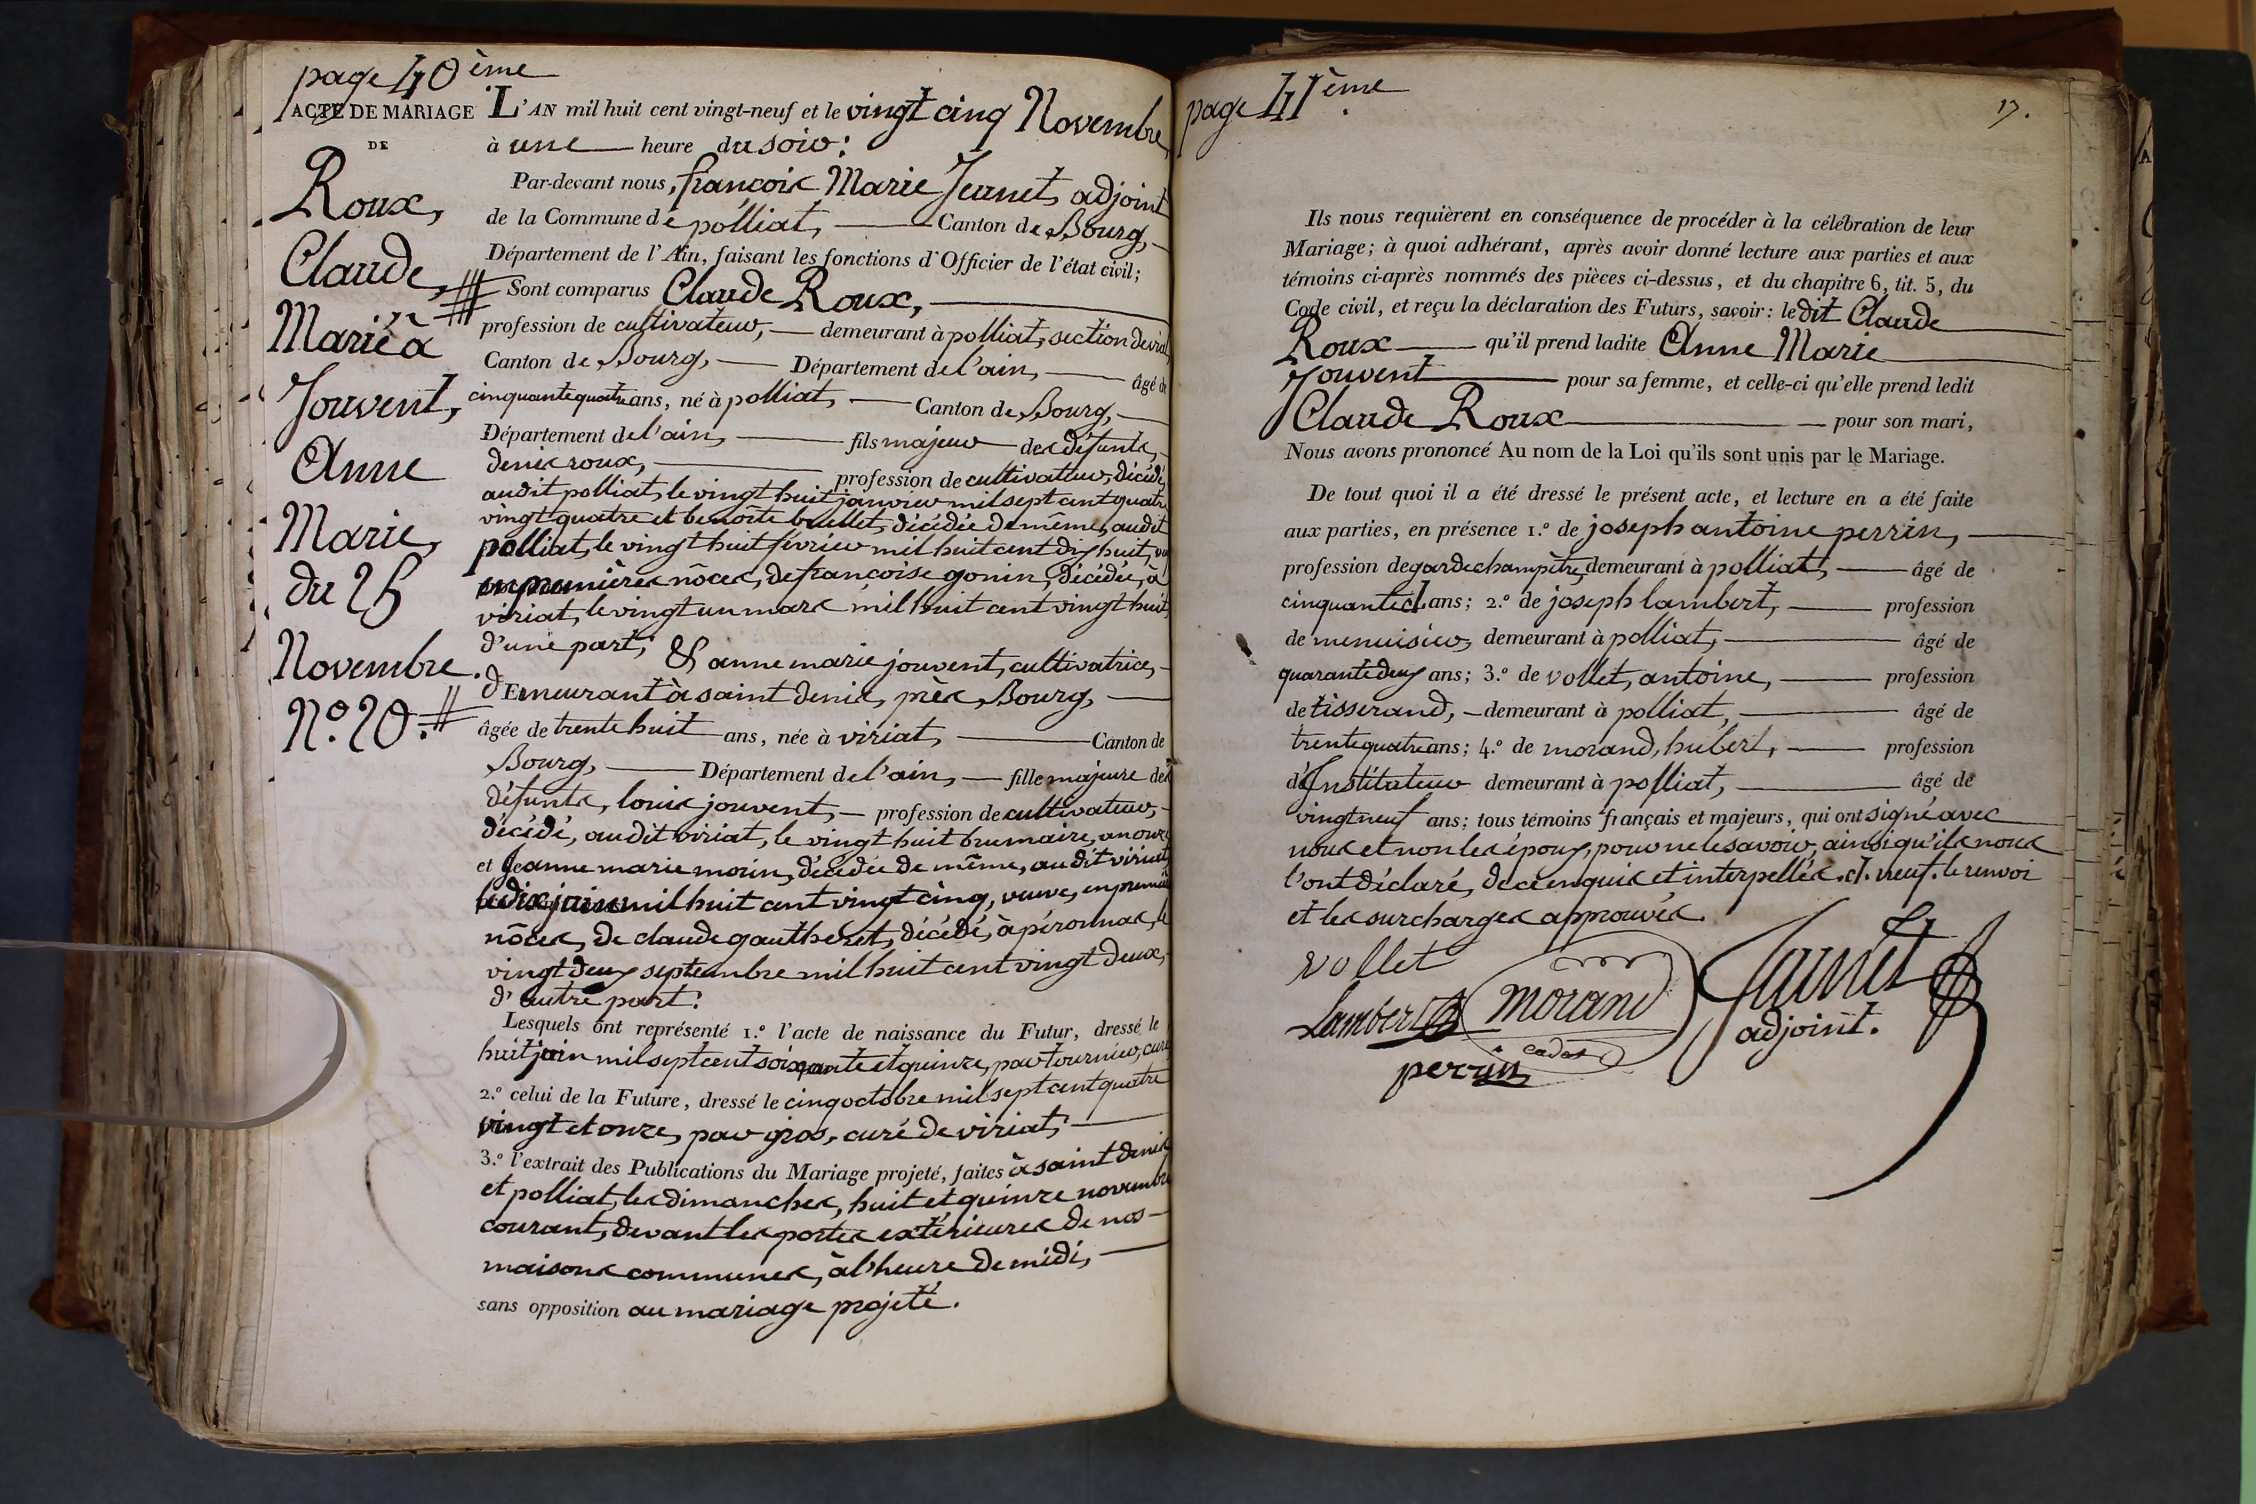 page 40ème
ACTE DE MARIAGE
DE
Roux,
Claude,
Marié à
Jouvent,
Anne
Marie,
du 25
Novembre.
N.º 20.
L'AN mil huit cent vingt-neuf et le vingt cinq Novembre,
à une heure du soir:
Par-devant nous, françois Marie Jeunet, adjoint
de la Commune de polliat, Canton de Bourg,
Département de l'Ain, faisant les fonctions d'Officier de l'état civil;
Sont comparus Claude Roux,
profession de cultivateur, demeurant à polliat, section de
Canton de Bourg, Département de l'ain, âgé de
cinquante quatre ans, né à polliat, Canton de Bourg,
Département de l'ain, fils majeur des défunts,
denis roux, profession de cultivateur, décédé,
audit polliat, le vingt huit janvier mil sept cent quatre
vingt quatre et benoîte brellet, décédée de même, audit
polliat, le vingt huit février mil huit cent dix huit,
en premières nôces, de françoise gonin, décédée, à
viriat, le vingt un mars mil huit cent vingt huit,
d'une part; & anne marie jouvent, cultivatrice,
dEmeurant à saint denis, près Bourg,
âgée de trente huit ans, née à viriat, Canton de
Bourg, Département de l'ain, fille majeure des
défunts, louis jouvent, profession de cultivateur,
décédé, audit viriat, le vingt huit brumaire, an onze
et Jeanne marie morin, décédée de même, audit viriat,
le dix juin mil huit cent vingt cinq, veuve, en première
nôces, de claude gautheret, décédé, à péronnas, le
vingt deux septembre mil huit cent vingt deux,
d'autre part:
Lesquels ont représenté 1.º l'acte de naissance du Futur, dressé le
huit juin mil sept cent soixante et quinze, par tournier, curé
2.º celui de la Future, dressé le cinq octobre mil sept cent quatre
vingt et onze, par gros, curé de viriat;
3.º l'extrait des Publications du Mariage projeté, faites à saint denis
et polliat, les dimanches, huit et quinze novembre
courant, devant les portes extérieures de nos
maisons communes, à l'heure de midi,
sans opposition au mariage projeté.
page 41ème.
17.
Ils nous requièrent en conséquence de procéder à la célébration de leur
Mariage; à quoi adhérant, après avoir donné lecture aux parties et aux
témoins ci-après nommés des pièces ci-dessus, et du chapitre 6, tit. 5, du
Code civil, et reçu la déclaration des Futurs, savoir: ledit Claude
Roux qu'il prend ladite Anne Marie
Jouvent pour sa femme, et celle-ci qu'elle prend ledit
Claude Roux pour son mari,
Nous avons prononcé Au nom de la Loi qu'ils sont unis par le Mariage.
De tout quoi il a été dressé le présent acte, et lecture en a été faite
aux parties, en présence 1.º de joseph antoine perrin,
profession de garde champètre, demeurant à polliat, âgé de
cinquante ans; 2.º de joseph lambert, profession
de menuisier, demeurant à polliat, âgé de
quarante deux ans; 3.º de vollet, antoine, profession
de tisserand, demeurant à polliat, âgé de
trente quatre ans; 4.º de morand, hubert, profession
d'Instituteur demeurant à polliat, âgé de
vingt neuf ans; tous témoins français et majeurs, qui ont signé avec
nous et non les époux, pour ne le savoir, ainsi qu'ils nous
l'ont déclaré, de ce enquis et interpellés. neuf. le renvoi
et les surcharges approuvés.
vollet
Lambert
morand
cadet
perrin
Jeunet
adjoint.